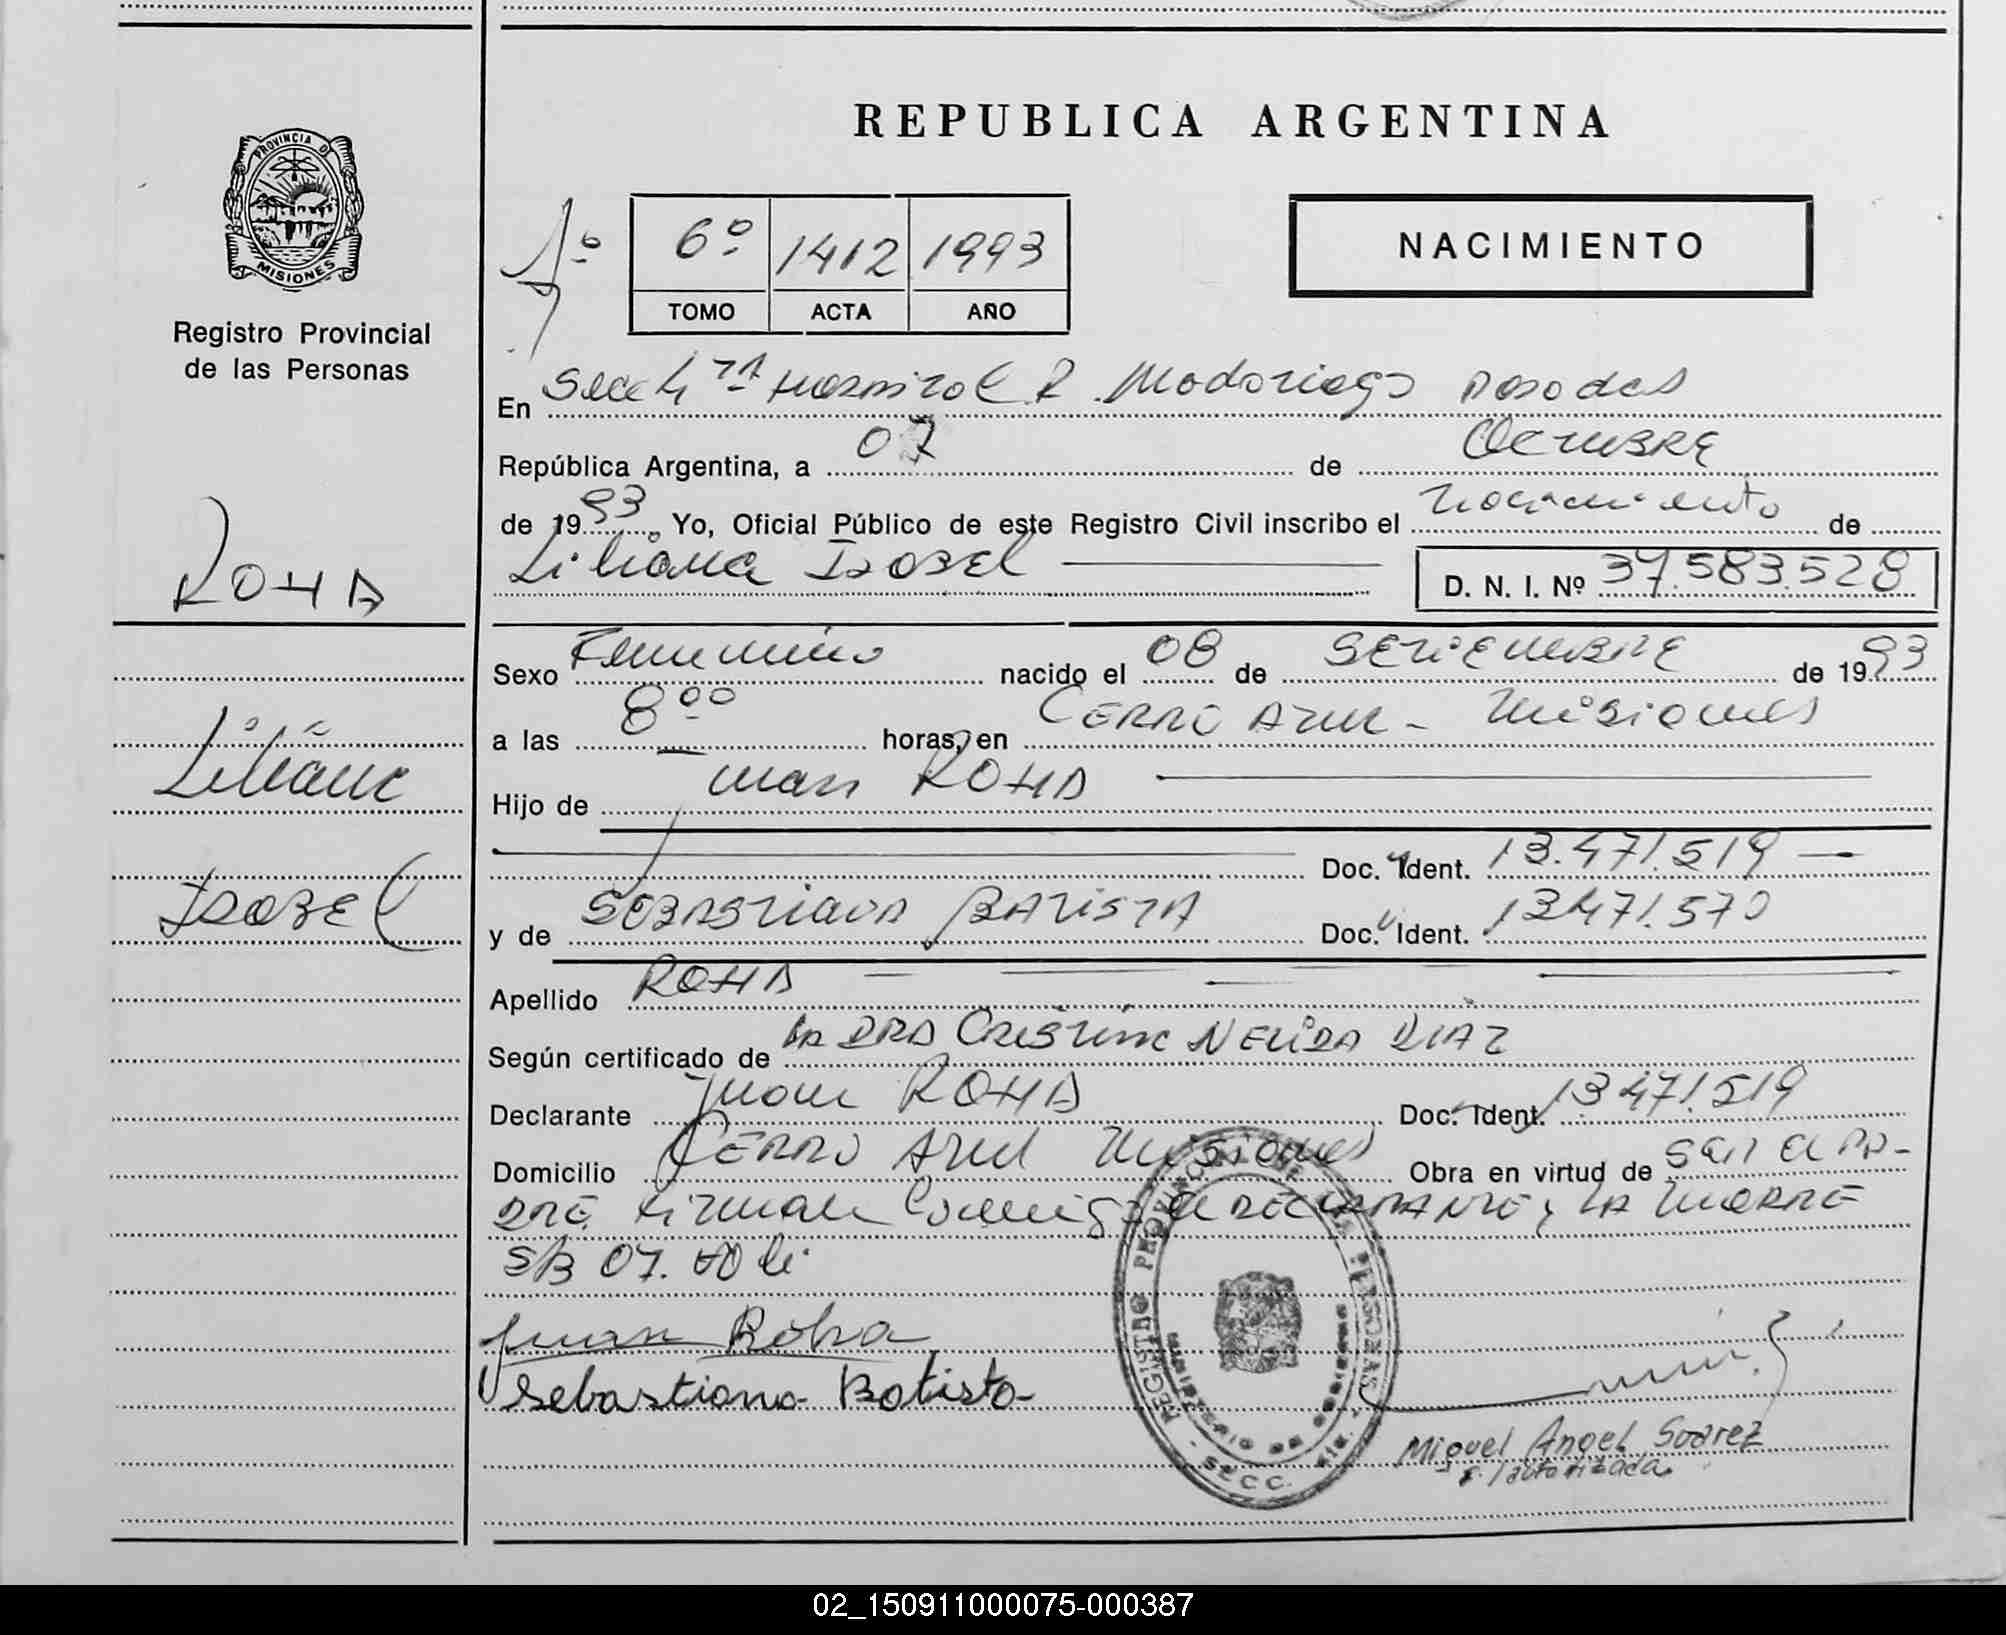 REPUBLICA ARGENTINA
PROVINCIA DE
MISIONES
Registro Provincial
de las Personas
6º 1412 1993
TOMO ACTA AÑO
NACIMIENTO
En Secc 4ta Hospital R. Madariaga Posadas
República Argentina, a 07 de Octubre
de 1993, Yo, Oficial Público de este Registro Civil inscribo el nacimiento de
Liliana Isabel D. N. I. Nº 37.583.528
ROHA
Liliana
Isabel
Sexo Femenino nacido el 08 de SETIEMBRE de 1993
a las 8ºº horas, en CERRO AZUL - Misiones
Hijo de Juan ROHA
Doc. Ident. 13.471.519
y de SEBASTIANA BATISTA Doc. Ident. 13471.570
Apellido ROHA
Según certificado de LA DRA Cristina NELIDA DIAZ
Declarante Juan ROHA Doc. Ident. 13471.519
Domicilio CERRO AZUL Misiones Obra en virtud de ser el PA-
DRE. Firman Conmigo el DECLARANTE y LA MADRE
07.
Juan Roha
Sebastiana Batista
REGISTRO PROVINCIAL DE LAS PERSONAS
SECC.
Miguel Angel Suarez
F. Autorizada
02_150911000075-000387